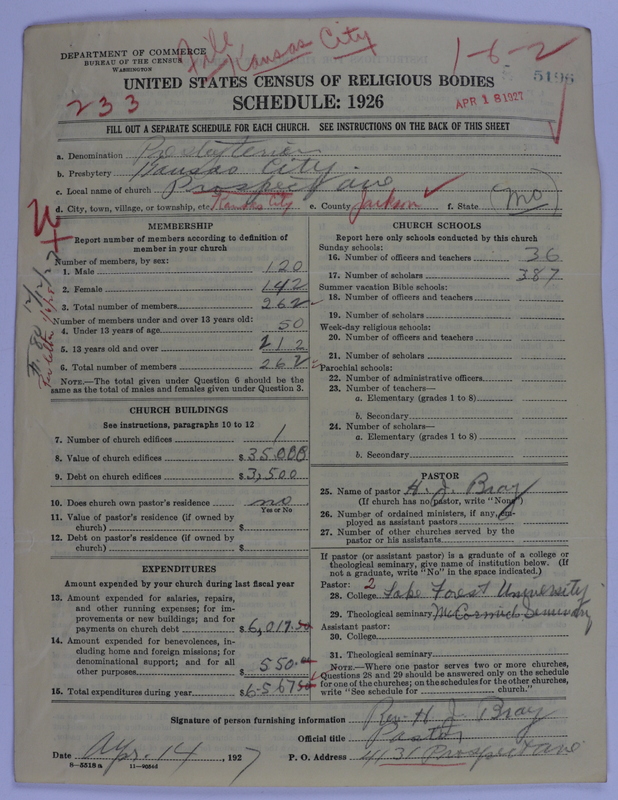 DEPARTMENT OF COMMERCE
BUREAU OF THE CENSUS
WASHINGTON
File Kansas City
1-6-2
5196
UNITED STATES CENSUS OF RELIGIOUS BODIES
233
SCHEDULE: 1926
APR 18 1927
FILL OUT A SEPARATE SCHEDULE FOR EACH CHURCH. SEE INSTRUCTIONS ON THE BACK OF THIS SHEET
a. Denomination Presbyterian
b. Presbytery Kansas City
c. Local name of church Prospect Ave
d. City, town, village, or township, etc. Kansas City e. County Jackson f. State (Mo)
MEMBERSHIP
Report number of members according to definition of member in your church
Number of members, by sex:
1. Male 120
2. Female 142
3. Total number of members 262
Number of members under and over 13 years old:
4. Under 13 years of age 50
5. 13 years old and over 212
6. Total number of members 262
NOTE.—The total given under Question 6 should be the
same as the total of males and females given under Question 3.
CHURCH BUILDINGS
See instructions, paragraphs 10 to 12
7. Number of church edifices 1
8. Value of church edifices $ 35000
9. Debt on church edifices $ 3,500
10. Does church own pastor's residence no
Yes or No
11. Value of pastor's residence (if owned by
church) $
12. Debt on pastor's residence (if owned by
church) $
EXPENDITURES
Amount expended by your church during last fiscal year
13. Amount expended for salaries, repairs,
and other running expenses; for im-
provements or new buildings; and for
payments on church debt $ 6,017.50
14. Amount expended for benevolences, in-
cluding home and foreign missions; for
denominational support; and for all
other purposes $ 550.00
15. Total expenditures during year $ 6567.50
CHURCH SCHOOLS
Report here only schools conducted by this church
Sunday schools:
16. Number of officers and teachers 36
17. Number of scholars 387
Summer vacation Bible schools:
18. Number of officers and teachers
19. Number of scholars
Week-day religious schools:
20. Number of officers and teachers
21. Number of scholars
Parochial schools:
22. Number of administrative officers
23. Number of teachers—
a. Elementary (grades 1 to 8)
b. Secondary
24. Number of scholars—
a. Elementary (grades 1 to 8)
b. Secondary
PASTOR
25. Name of pastor H. J. Bray
(If church has no pastor, write "None")
26. Number of ordained ministers, if any, em-
ployed as assistant pastors
27. Number of other churches served by the
pastor or his assistants
If pastor (or assistant pastor) is a graduate of a college or
theological seminary, give name of institution below. (If
not a graduate, write "No" in the space indicated.)
Pastor: 2
28. College Lake Forest University
29. Theological seminary McCormick Seminary
Assistant pastor:
30. College
31. Theological seminary
NOTE.—Where one pastor serves two or more churches,
Questions 28 and 29 should be answered only on the schedule
for one of the churches; on the schedules for the other churches,
write "See schedule for church."
Signature of person furnishing information Rev. H J Bray
Official title Pastor
Date Apr. 14, 1927 P. O. Address 4131 Prospect Ave
8—5518 a